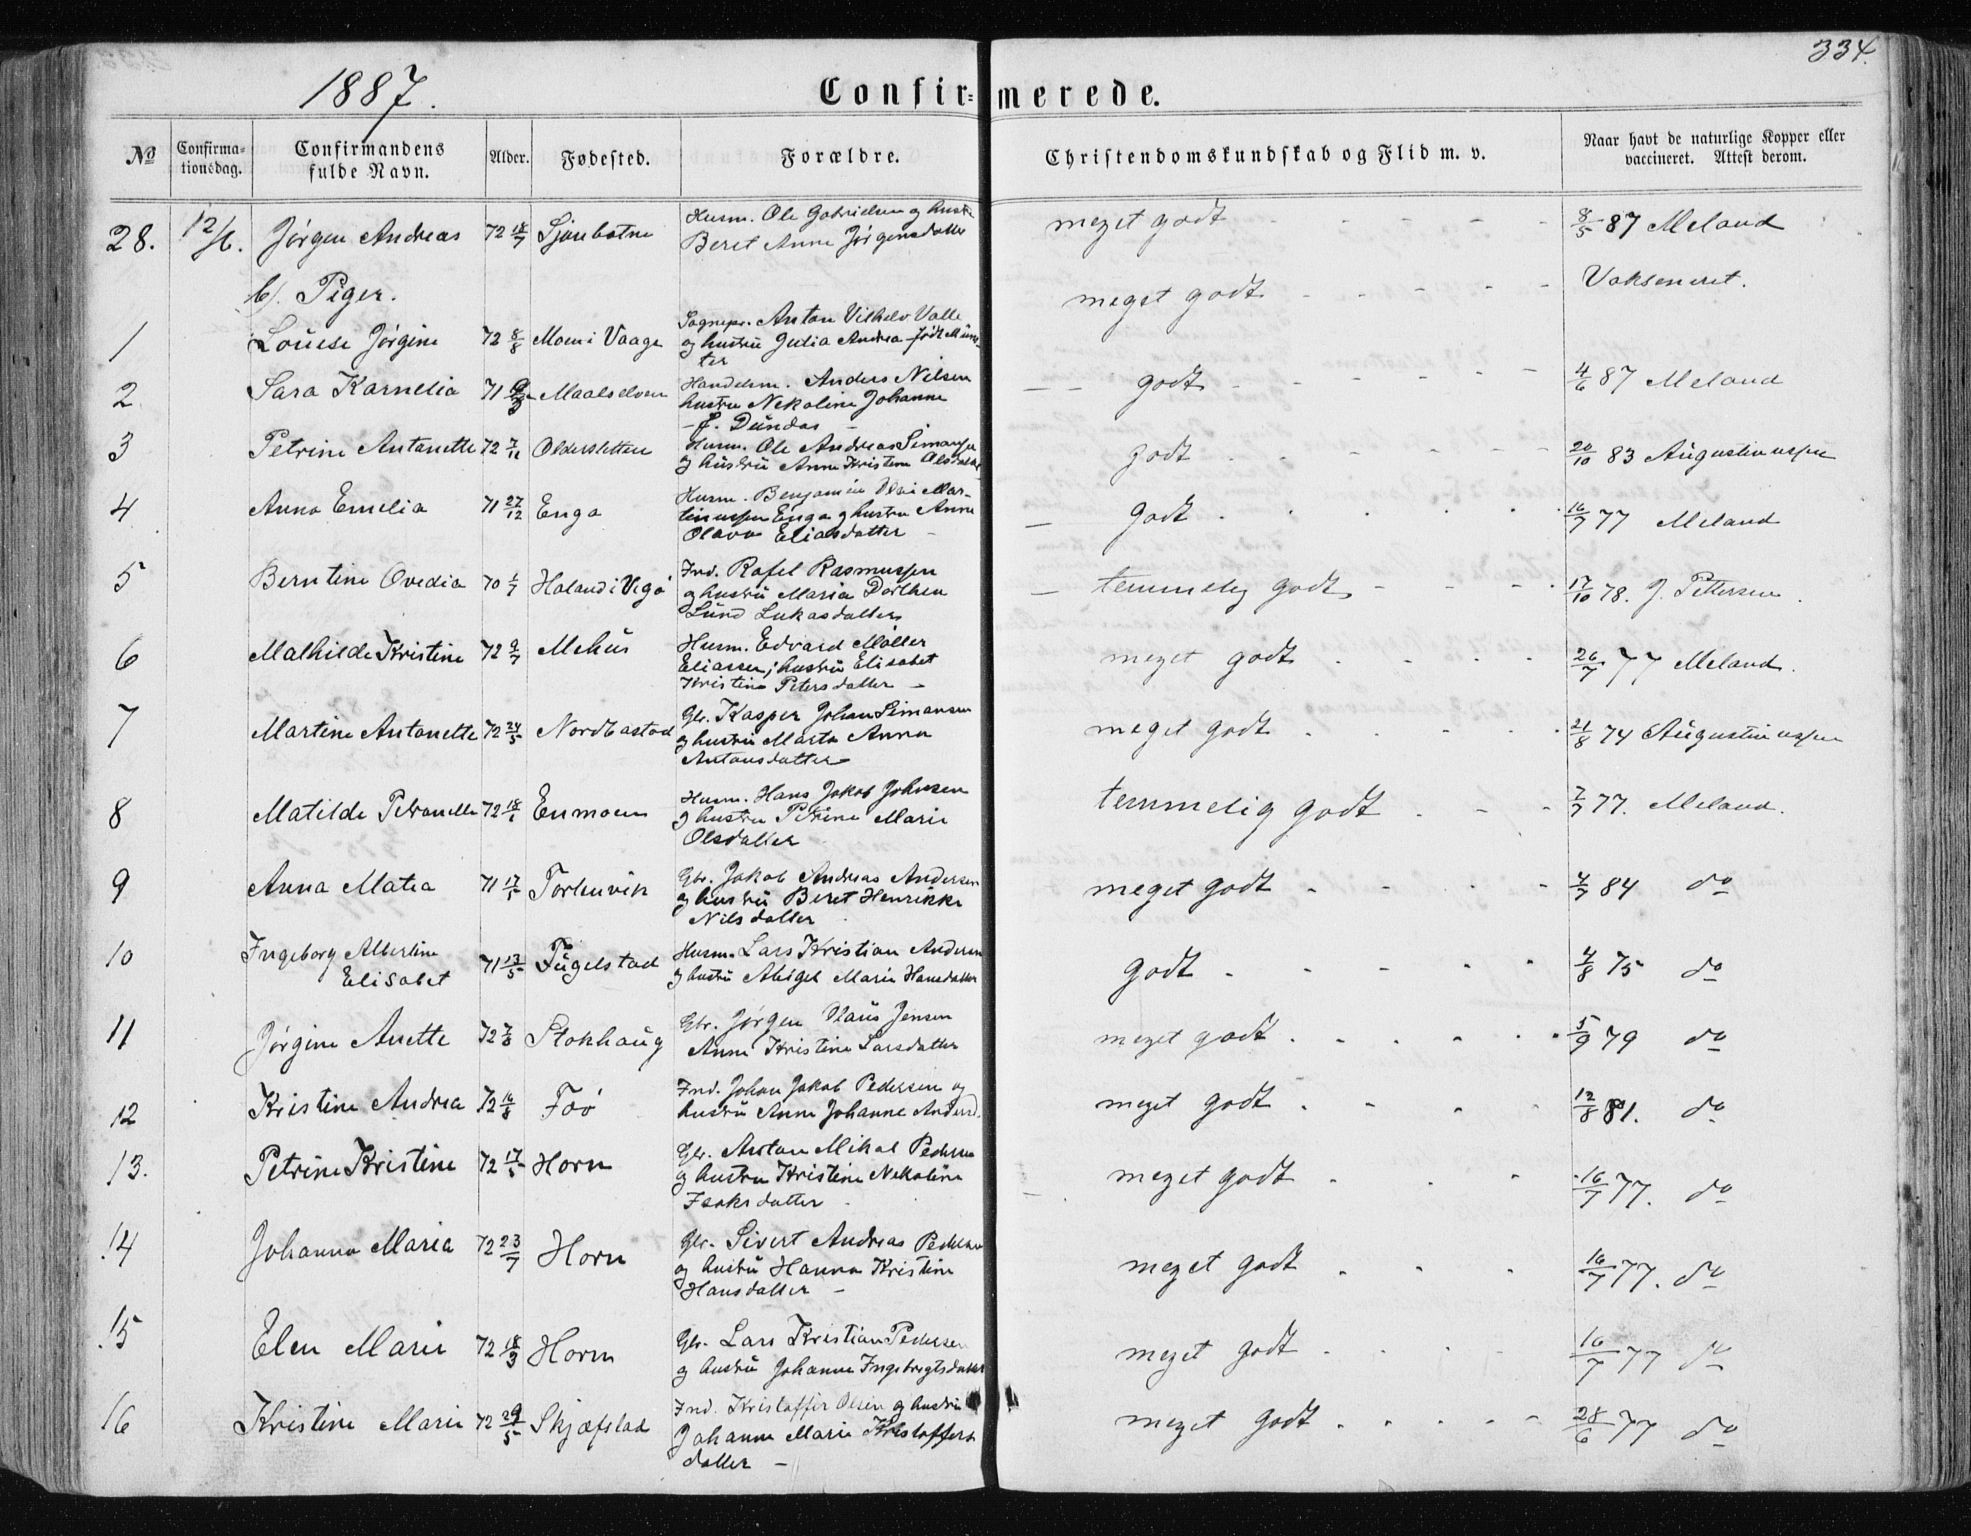 334.
1887.
Confir= merede.
No
Confirma=
tionsdag.
Confirmandens
fulde Navn.
Alder.
Fødested.
Forældre.
Christendomskundskab og Flid m. v.
Naar havt de naturlige Kopper eller
vaccineret. Attest derom.
28. 12/6. Jørgen Andreas 72 18/7 Sjonbotne
Husm. Ole Gabrielsen og hustru
Beret Anne Jørgensdatter
meget godt - - - - - 8/5 87 Meland
b/. Piger.
1 Louise Jørgine 72 8/8 Moen i Vaage
Sognepr. Anton Vilhelv Valle
og hustrü Julia Andrea født Müns-
ter
meget godt - - - - - Vaksineret.
2 Sara Karnelia 71 Maalselven
Handelsm. Anders Nilsen
hustru Nekoline Johanne
- f. Dündas -
godt - - - - - 4/6 87 Meland
3 Petrine Antonette 72 7/11 Oldersletten
Husm. Ole Andreas Simonsen
og hüstrü Anne Kristine Olsdatter
godt - - - - - 20/10 83 Augustinussen
4 Anna Emelia 71 27/12 Enga
Husm. Benjamin Olai Mar-
tinussen Enga og hustru Anne
Olava Eliasdatter -
godt - - - - - 16/7 77 Meland
5 Berntine Ovedia 70 1/7 Haland i Vigø
Ind. Rafel Rasmussen
og hustrü Maria Dorthea
Lünd Lukasdatter
temmelig godt - - - - 17/10 78. J. Pettersen.
6 Mathilde Kristine 72 9/7 Mehüs
Husm. Edvard Møller
Eliassen; hustrü Elisabet
Kristine Petersdatter -
meget godt - - - - 26/7 77 Meland.
7 Martine Antonette 72 24/5 Nordbastad
Gbr. Kasper Johan Simonsen
og hustrü Marta Anna
Antonsdatter
meget godt - - - - 21/8 74 Augustinussen
8 Matilde Petronelle 72 18/1 Enmoen
Husm. Hans Jakob Johnsen
og hustru Petrine Marie
Olsdatter
temmelig godt - - - 7/7 77. Meland.
9 Anna Matea 71 17/5 Torhuvik
Gbr. Jakob Andreas Andersen
og hustrü Beret Henrikke
Nilsdatter
meget godt - - - - 4/7 84 do
10 Ingeborg Albertine
Elisabet 71 13/5 Fügelstad
Husm. Lars Kristian Andersen
og hustrü Abigel Marie Hansdatter
godt - - - - - 4/8 75 do
11 Jørgine Anette 72 7/8 Stokhaüg
Gbr. Jørgen Olaüs Jensen
Anne Kristine Larsdatter
meget godt - - - - - 5/9 79 do
12 Kristine Andrea 72 16/8 Foø
Ind. Johan Jakob Pedersen og
hustrü Anne Johanne Andersd.
meget godt - - - - 12/8 81. do
13. Petrine Kristine 72 17/5 Horn
Gbr. Anton Mikal Pedersen
og hustru Kristine Nekoline
Isaksdatter
meget godt - - - 16/7 77. do
14 Johanna Maria 72 23/7 Horn
Gbr. Sivert Andreas Pedersen
og hustrü Hanna Kristine
Hansdatter -
meget godt - - - 16/7 77. do
15 Elen Marie 72 18/3 Horn
Gbr. Lars Kristian Pedersen
og hustrü Johanne Ingebregtsdatter
meget godt - - - - 16/7 77 do
16 Kristine Marie 72 29/5 Skjæfstad
Ind. Kristoffer Olsen og hustrü
Johanne Marie Kristoffers-
datter -
meget godt - - - - - 28/6 77 do